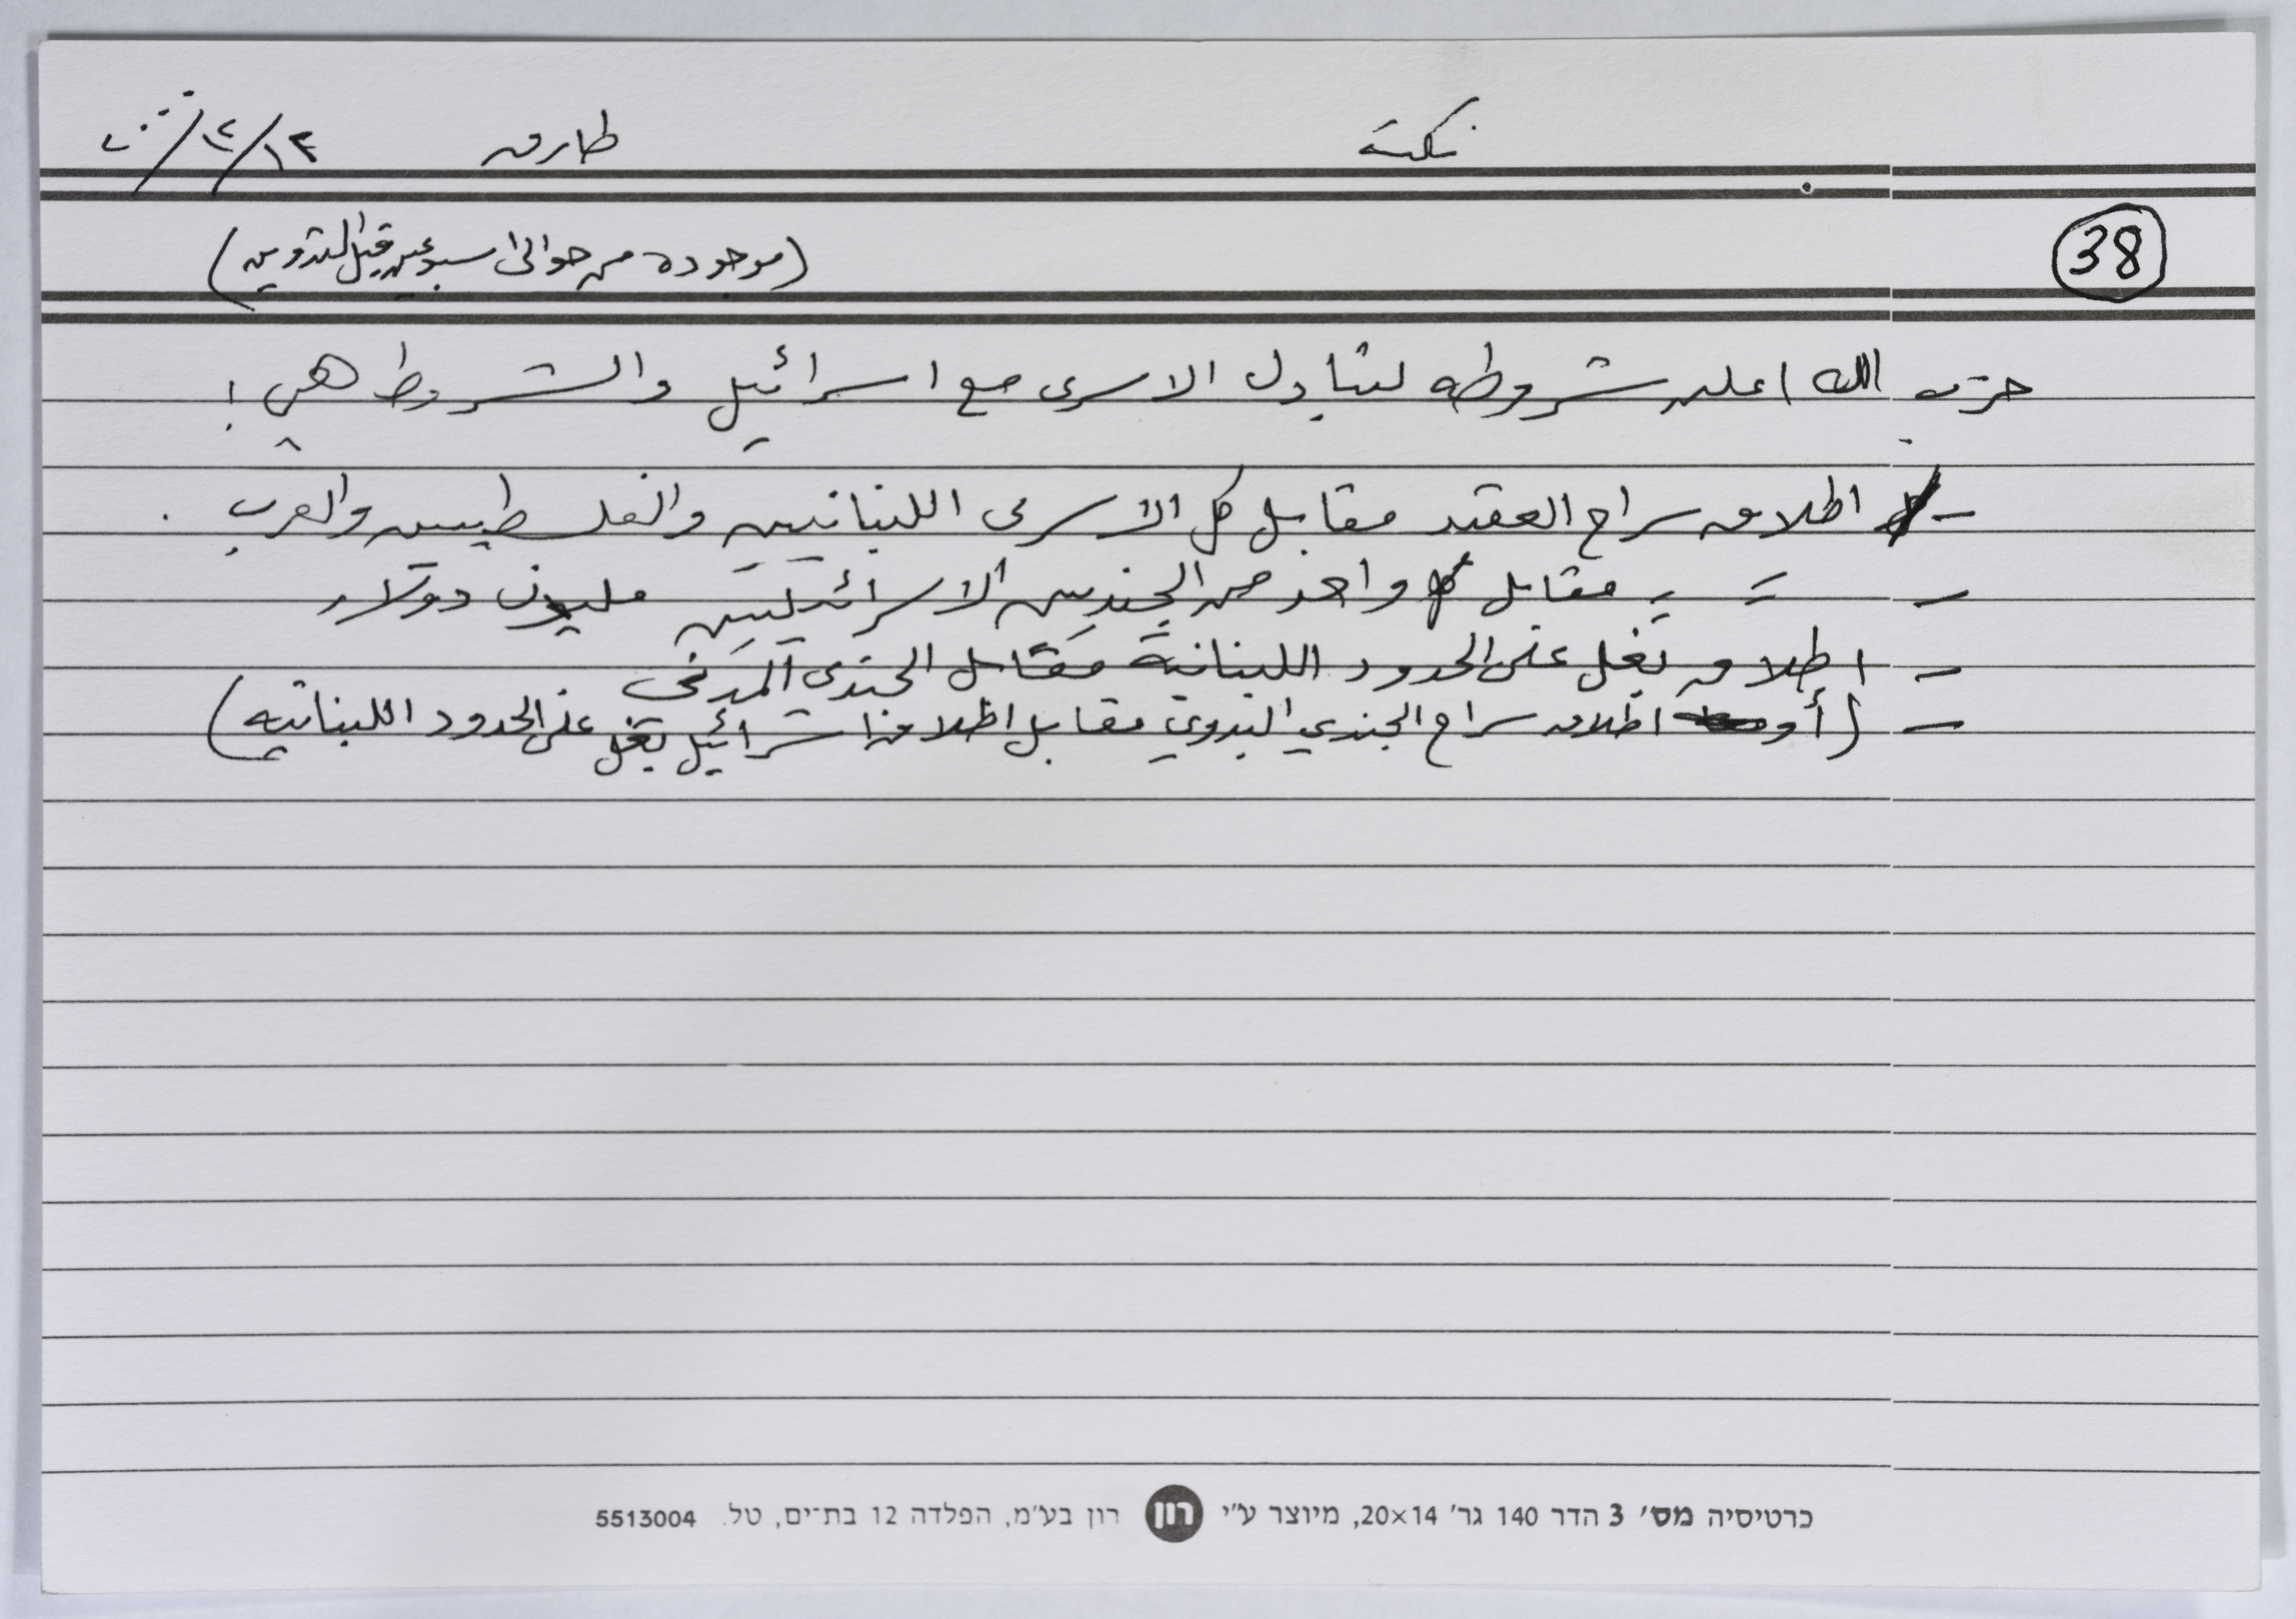 نكتة طارق ١٢/٢/٢٠٠٠
38 (موجوده من حوالى اسبوعين قبل التدوين)
حزب الله اعلن شروطه لتبادل الاسرى مع اسرائيل والشروط هي:
- اطلاق سراح العقيد مقابل كل الاسرى اللبنانيين والفلسطينيين والعرب.
- = = مقابل واحد من الجنديين الاسرائيليين مليون دولار
- اطلاق بغل على الحدود اللبنانية مقابل الجندي
- (أو اطلاق سراح الجندي البدوي مقابل اطلاق اسرائيل بغل على الحدود اللبنانيه)
כרטיסיה מס׳ 3 הדר 140 גר׳ 20×14, מיוצר ע״י רון רון בע״מ, הפלדה 12 בת־ים, טל. 5513004